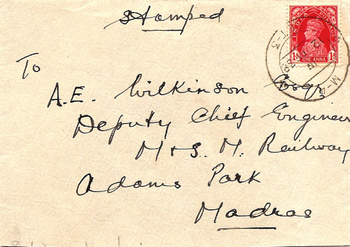 Stamped
ONE ANNA
To
A.E. Wilkinson Esqr
Deputy Chief Engineer
M & S. M. Railway
Adams Park
Madras